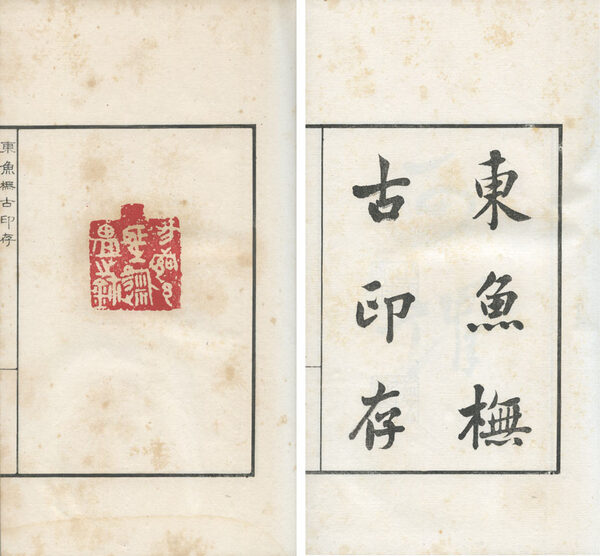 東魚橅
古印存
東魚橅古印存